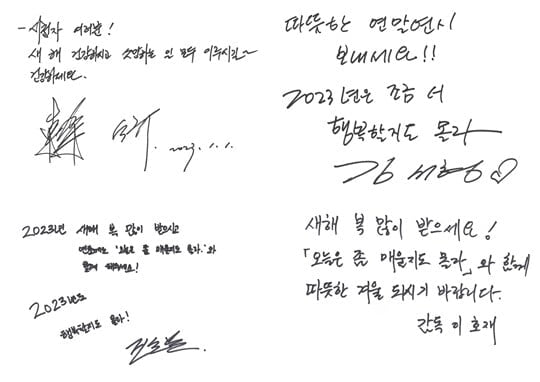 - 시청자 여러분!
새 해 건강하시고 소망하는 일 모두 이루시길~
건강하세요.
2023. 1. 1.
따뜻한 연말연시
보내세요!!
2023년은 조금 더
행복할지도 몰라
김서형♡
2023년 새해 복 많이 받으시고
연초에도 '오늘은 좀 매울지도 몰라'와
함께 해주세요!
2023년도
행복할지도 몰라!
새해 복 많이 받으세요!
「오늘은 좀 매울지도 몰라」와 함께
따뜻한 겨울 되시기 바랍니다.
감독 이호재